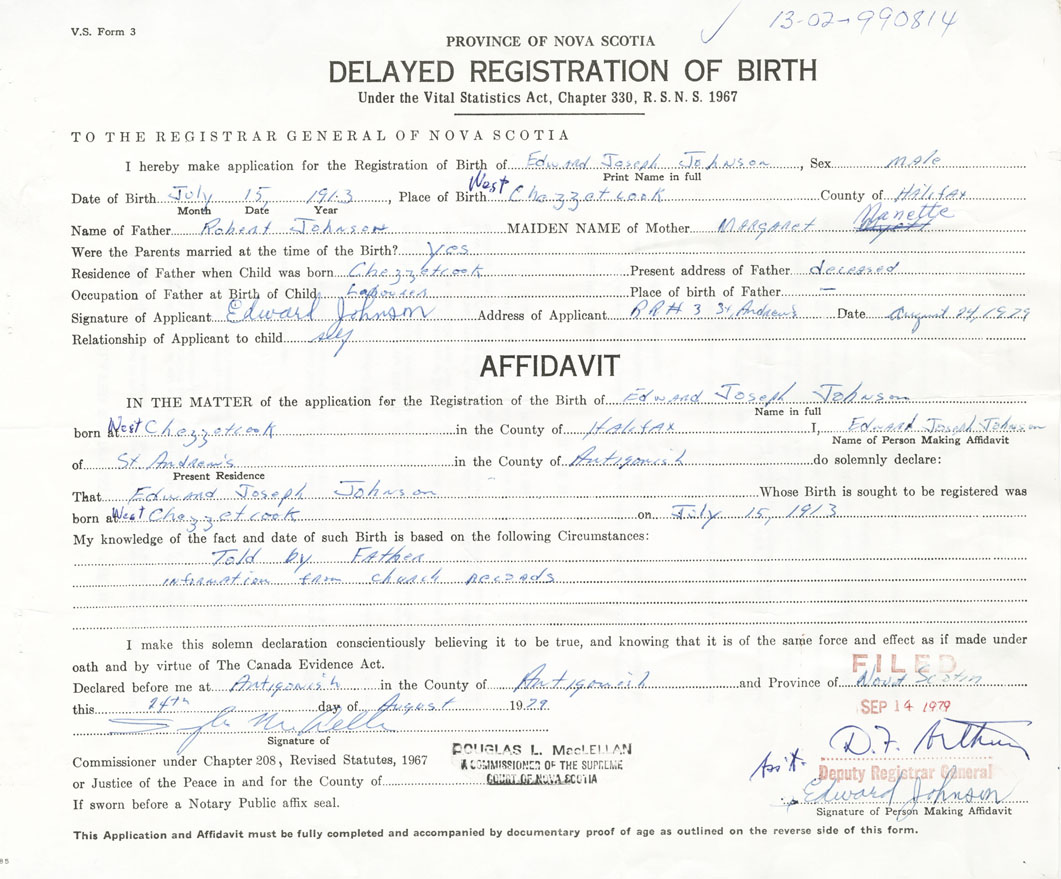 V.S. Form 3
13-02-990814
PROVINCE OF NOVA SCOTIA
DELAYED REGISTRATION OF BIRTH
Under the Vital Statistics Act, Chapter 330, R.S.N.S. 1967
TO THE REGISTRAR GENERAL OF NOVA SCOTIA
I hereby make application for the Registration of Birth of Edward Joseph Johnson, Sex male
Print Name in full
Date of Birth July 15, 1913, Place of Birth West Chezzetcook County of Halifax
Month Date Year
Name of Father Robert Johnson MAIDEN NAME of Mother Margaret Nanette
Were the Parents married at the time of the Birth? yes
Residence of Father when Child was born Chezzetcook Present address of Father deceased
Occupation of Father at Birth of Child Labourer Place of birth of Father —
Signature of Applicant Edward Johnson Address of Applicant RR# 3 St, Andrew's Date August 24, 1979
Relationship of Applicant to child self
AFFIDAVIT
IN THE MATTER of the application for the Registration of the Birth of Edward Joseph Johnson
Name in full
born at West Chezzetcook in the County of Halifax I, Edward Joseph Johnson
Name of Person Making Affidavit
of St Andrew's in the County of Antigonish do solemnly declare:
Present Residence
That Edward Joseph Johnson Whose Birth is sought to be registered was
born at West Chezzetcook on July 15, 1913
My knowledge of the fact and date of such Birth is based on the following Circumstances:
Told by Father
information from church records
I make this solemn declaration conscientiously believing it to be true, and knowing that it is of the same force and effect as if made under
oath and by virtue of The Canada Evidence Act.
FILED
Declared before me at Antigonish in the County of Antigonish and Province of Nova Scotia
this 24th day of August 1979.
SEP 14 1979
Signature of
D.F. Arthur
Commissioner under Chapter 208, Revised Statutes, 1967
DOUGLAS L. MacLELLAN
A COMMISSIONER OF THE SUPREME
COURT OF NOVA SCOTIA
Ass't. Deputy Registrar General
or Justice of the Peace in and for the County of
Edward Johnson
If sworn before a Notary Public affix seal.
Signature of Person Making Affidavit
This Application and Affidavit must be fully completed and accompanied by documentary proof of age as outlined on the reverse side of this form.